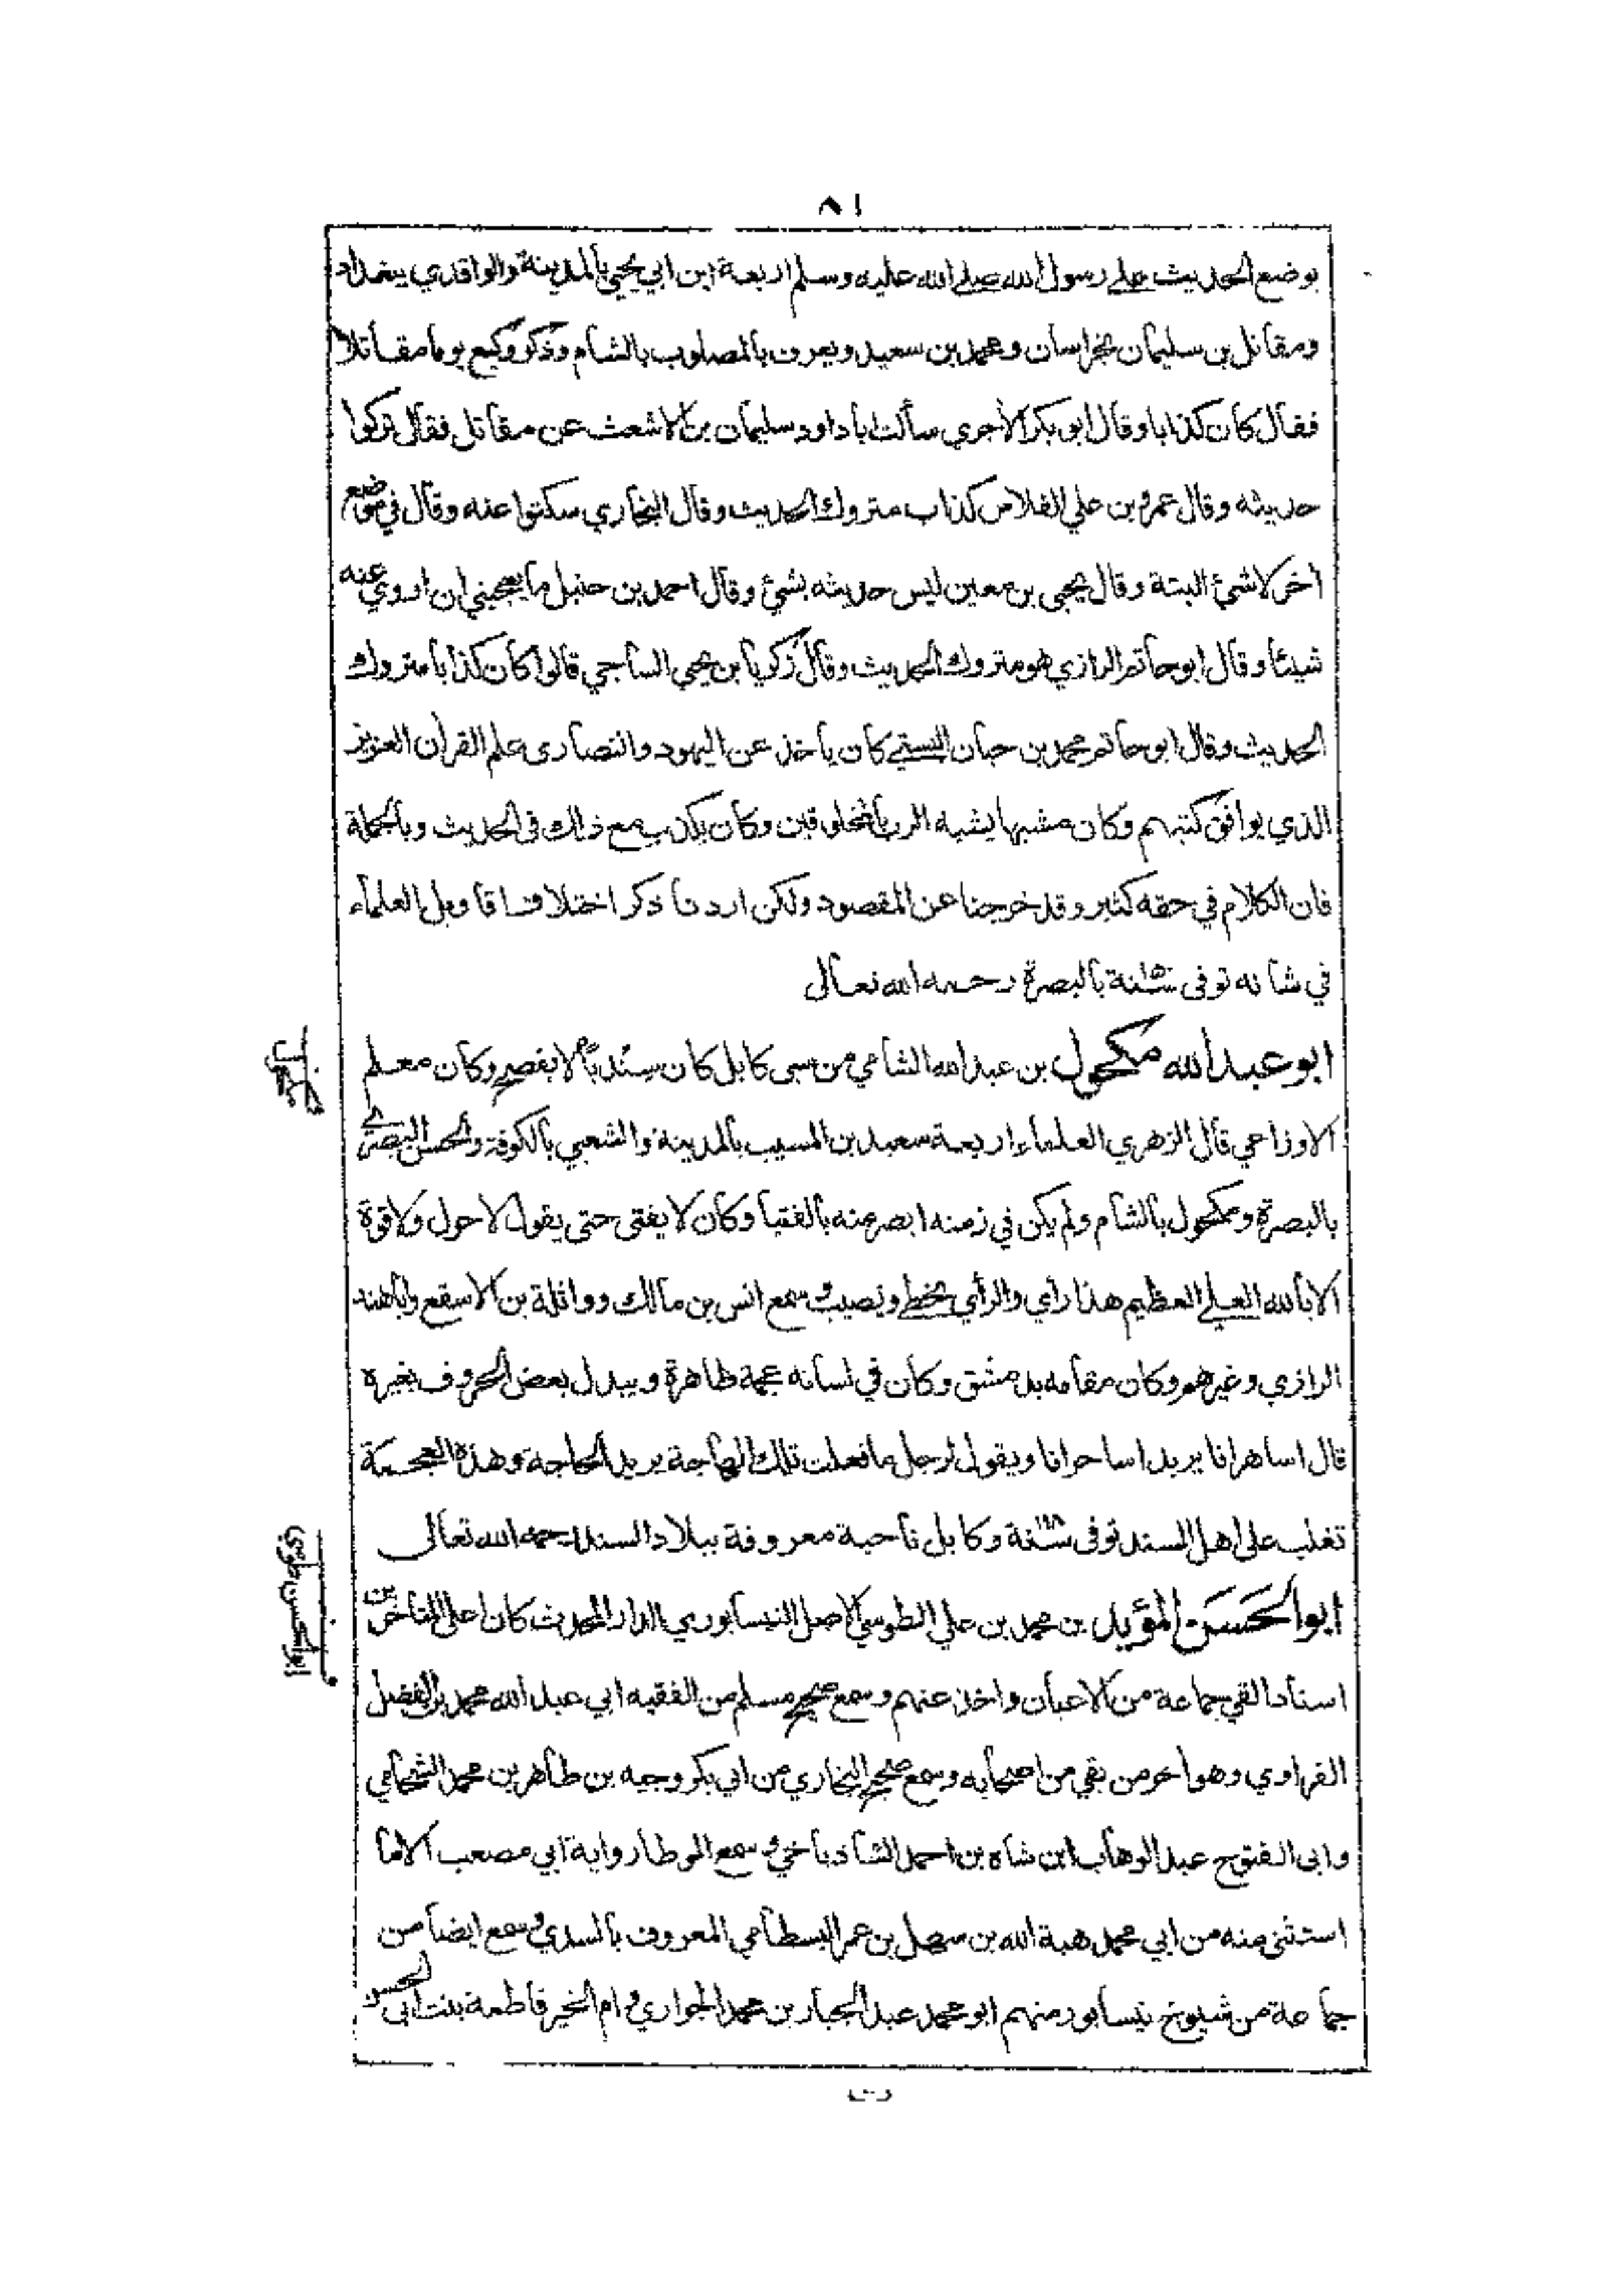 ٨١
بوضع الحديث على رسول الله صلى الله عليه وسلم اربعة ابن ابي يحيى بالمدينة والواقدي ببغداد
ومقاتل بن سليمان بخراسان ومحمد بن سعيد ويعرف بالمصلوب بالشام وذكر وكيع يوما مقاتلا
فقال كان كذابا وقال ابو بكر الآجري سألت ابا داود سليمان بن الاشعث عن مقاتل فقال تركوا
حديثه وقال عمرو بن علي الفلاس كذاب متروك الحديث وقال البخاري سكتوا عنه وقال في موضع
اخر لاشئ البتة وقال يحيى بن معين ليس حديثه بشئ وقال احمد بن حنبل ما يعجبني ان اروي عنه
شيئا وقال ابو حاتم الرازي هو متروك الحديث وقال زكريا بن يحيى الساجي قالوا كان كذابا متروك
الحديث وقال ابو حاتم محمد بن حبان البستي كان يأخذ عن اليهود والنصارى علم القرآن العزيز
الذي يوافق كتبهم وكان مشبها يشبه الرب بالمخلوقين وكان يكذب مع ذلك في الحديث وبالجملة
فان الكلام في حقه كثير وقد خرجنا عن المقصود ولكن اردنا ذكر اختلاف اقاويل العلماء
في شانه توفى بالبصرة رحمه الله تعالى
ابو عبد الله مكحول بن عبد الله الشامي من سبى كابل كان سنديا لا يفصح وكان معلم
الاوزاعي قال الزهري العلماء اربعة سعيد بن المسيب بالمدينة والشعبي بالكوفة والحسن البصري
بالبصرة ومكحول بالشام ولم يكن في زمنه ابصر منه بالفتيا وكان لا يفتى حتى يقول لاحول ولا قوة
الا بالله العلي العظيم هذا رأي والرأي يخطئ ويصيب وسمع انس بن مالك وواثلة بن الاسقع وابا هند
الرازي وغيرهم وكان مقامه بدمشق وكان في لسانه عجمة ظاهرة ويبدل بعض الحروف بغيره
قال اساهرانا يريد اساحرانا ويقول لرجل ما فعلت تلك الهاجة يريد الحاجة وهذه العجمة
تغلب على اهل السند توفى وكابل ناحية معروفة ببلاد السند رحمه الله تعالى
ابو الحسن المؤيد بن محمد بن علي الطوسي الاصل النيسابوري الدار المحدث كان اعلى المتأخرين
اسنادا لقي جماعة من الاعيان واخذ عنهم وسمع صحيح مسلم من الفقيه ابي عبد الله محمد بن الفضل
الفراوي وهو اخر من بقي من اصحابه وسمع صحيح البخاري من ابي بكر وجيه بن طاهر بن محمد الشحامي
وابى الفتوح عبد الوهاب ابن شاه بن احمد الشاذياخي وسمع الموطا رواية ابي مصعب الا ما
استثنى منه من ابي محمد هبة الله بن سهل بن عمر البسطامي المعروف بالسدي وسمع ايضا من
جماعة من شيوخ نيسابور منهم ابو محمد عبد الجبار بن محمد الجواري وام الخير فاطمة بنت ابى الحسن
مكحول
ابو الحسن طوسى